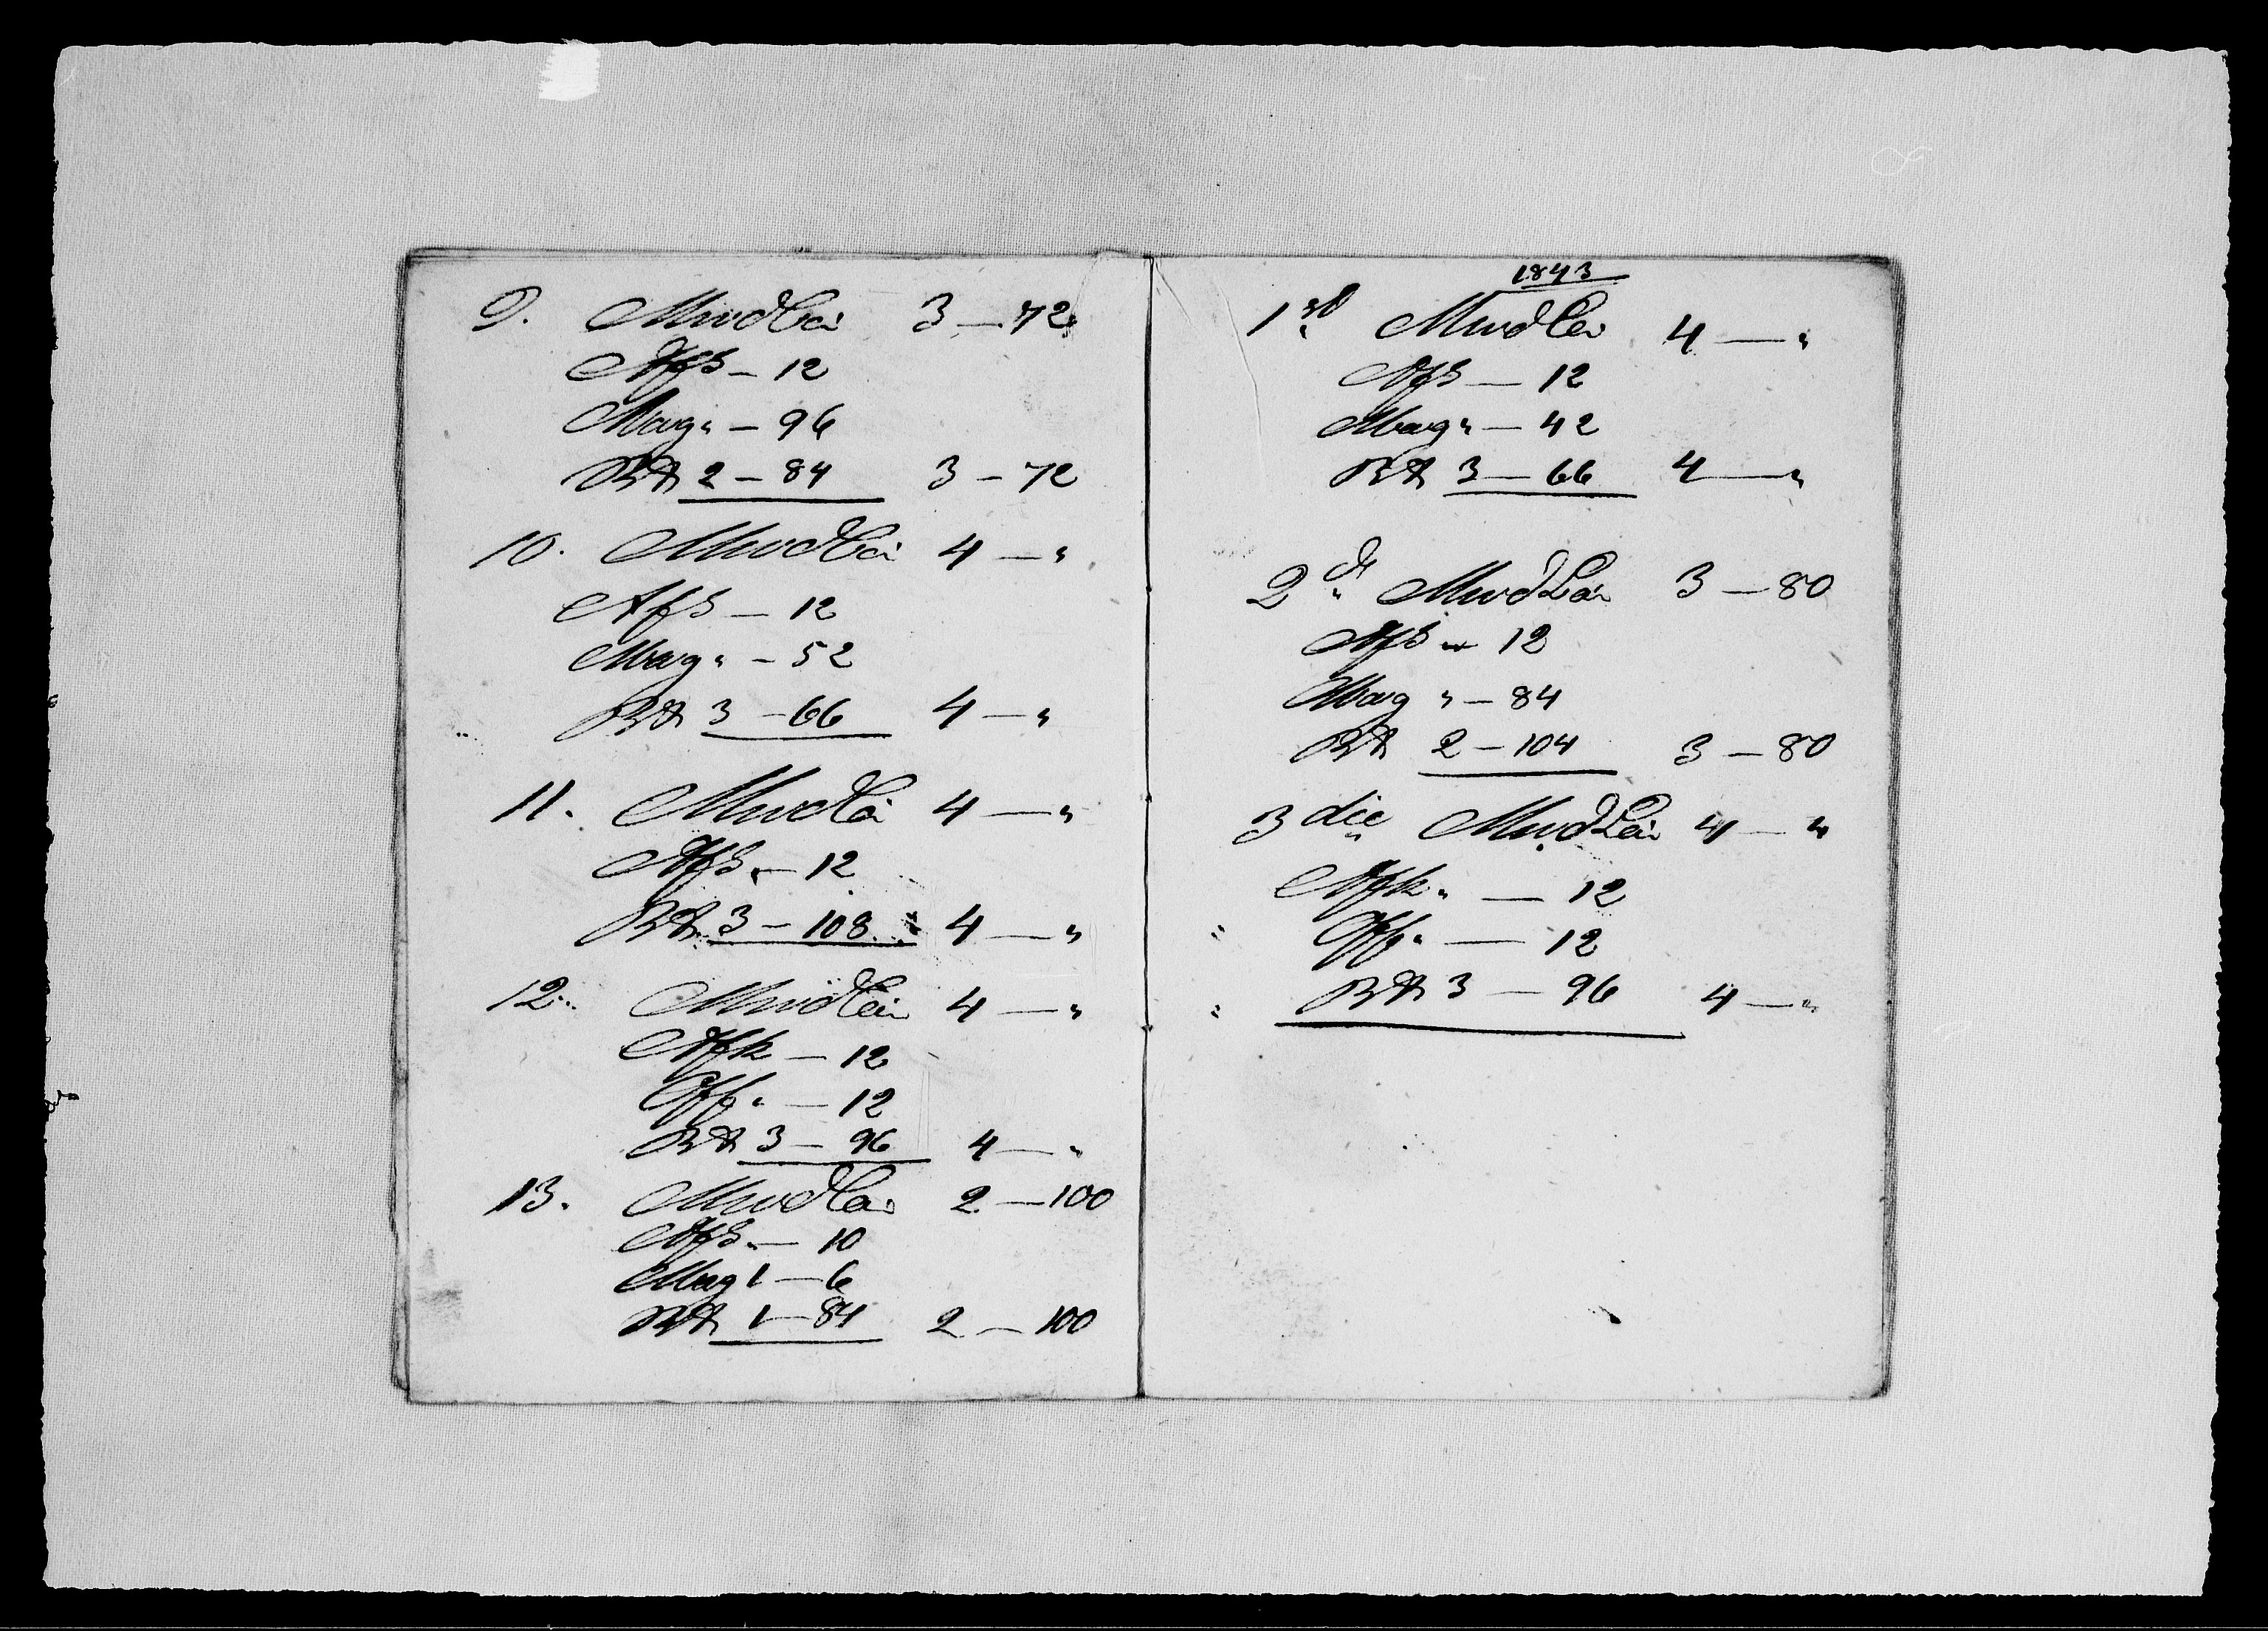 9. MwdLei 3 – 72
Afs – 12
Mag „ – 96
Rt 2 – 84 3 – 72
10. MwdLei 4 – „
Afs – 12
Mag „ – 52
Rt 3 – 66 4 – „
11. MwdLei 4 – „
Afs „ – 12
Rt 3 – 108 4 – „
12 „ MwdLei 4 – „
Afk – 12
Off „ – 12
Rt 3 – 96 4 – „
13. MwdLei 2 – 100
Afs „ – 10
Mag 1 – 6
Rt 1 – 84 2 – 100
1843
1st MwdLei 4 – „
Afs – 12
Mag „ – 42
Rt 3 – 66 4 – „
2d „ MwdLei 3 – 80
Afs – 12
Mag „ – 84
Rt 2 – 104 3 – 80
3die „ MwdLei 4 – „
Afk „ – 12
„ Off „ – 12
„ Rt 3 – 96 4 – „